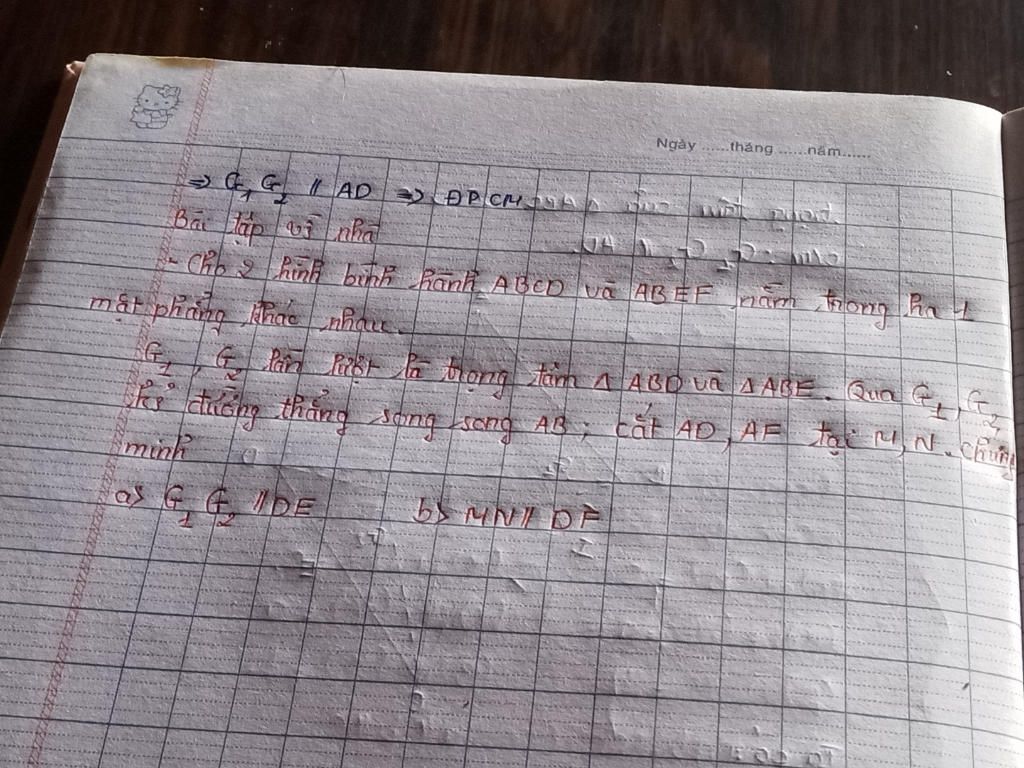 Ngày ......tháng ......năm......
⇒ G₁ G₂ // AD ⇒ ĐPCM
Bài tập về nhà
- Cho 2 hình bình hành ABCD và ABEF nằm trong ha 1
mặt phẳng khác nhau.
G₁, G₂ lần lượt là trọng tâm Δ ABD và Δ ABE. Qua G₁, G₂
kẻ đường thẳng song song AB; cắt AD, AF tại M, N. Chứng
minh
a> G₁ G₂ // DE b> MN // DF